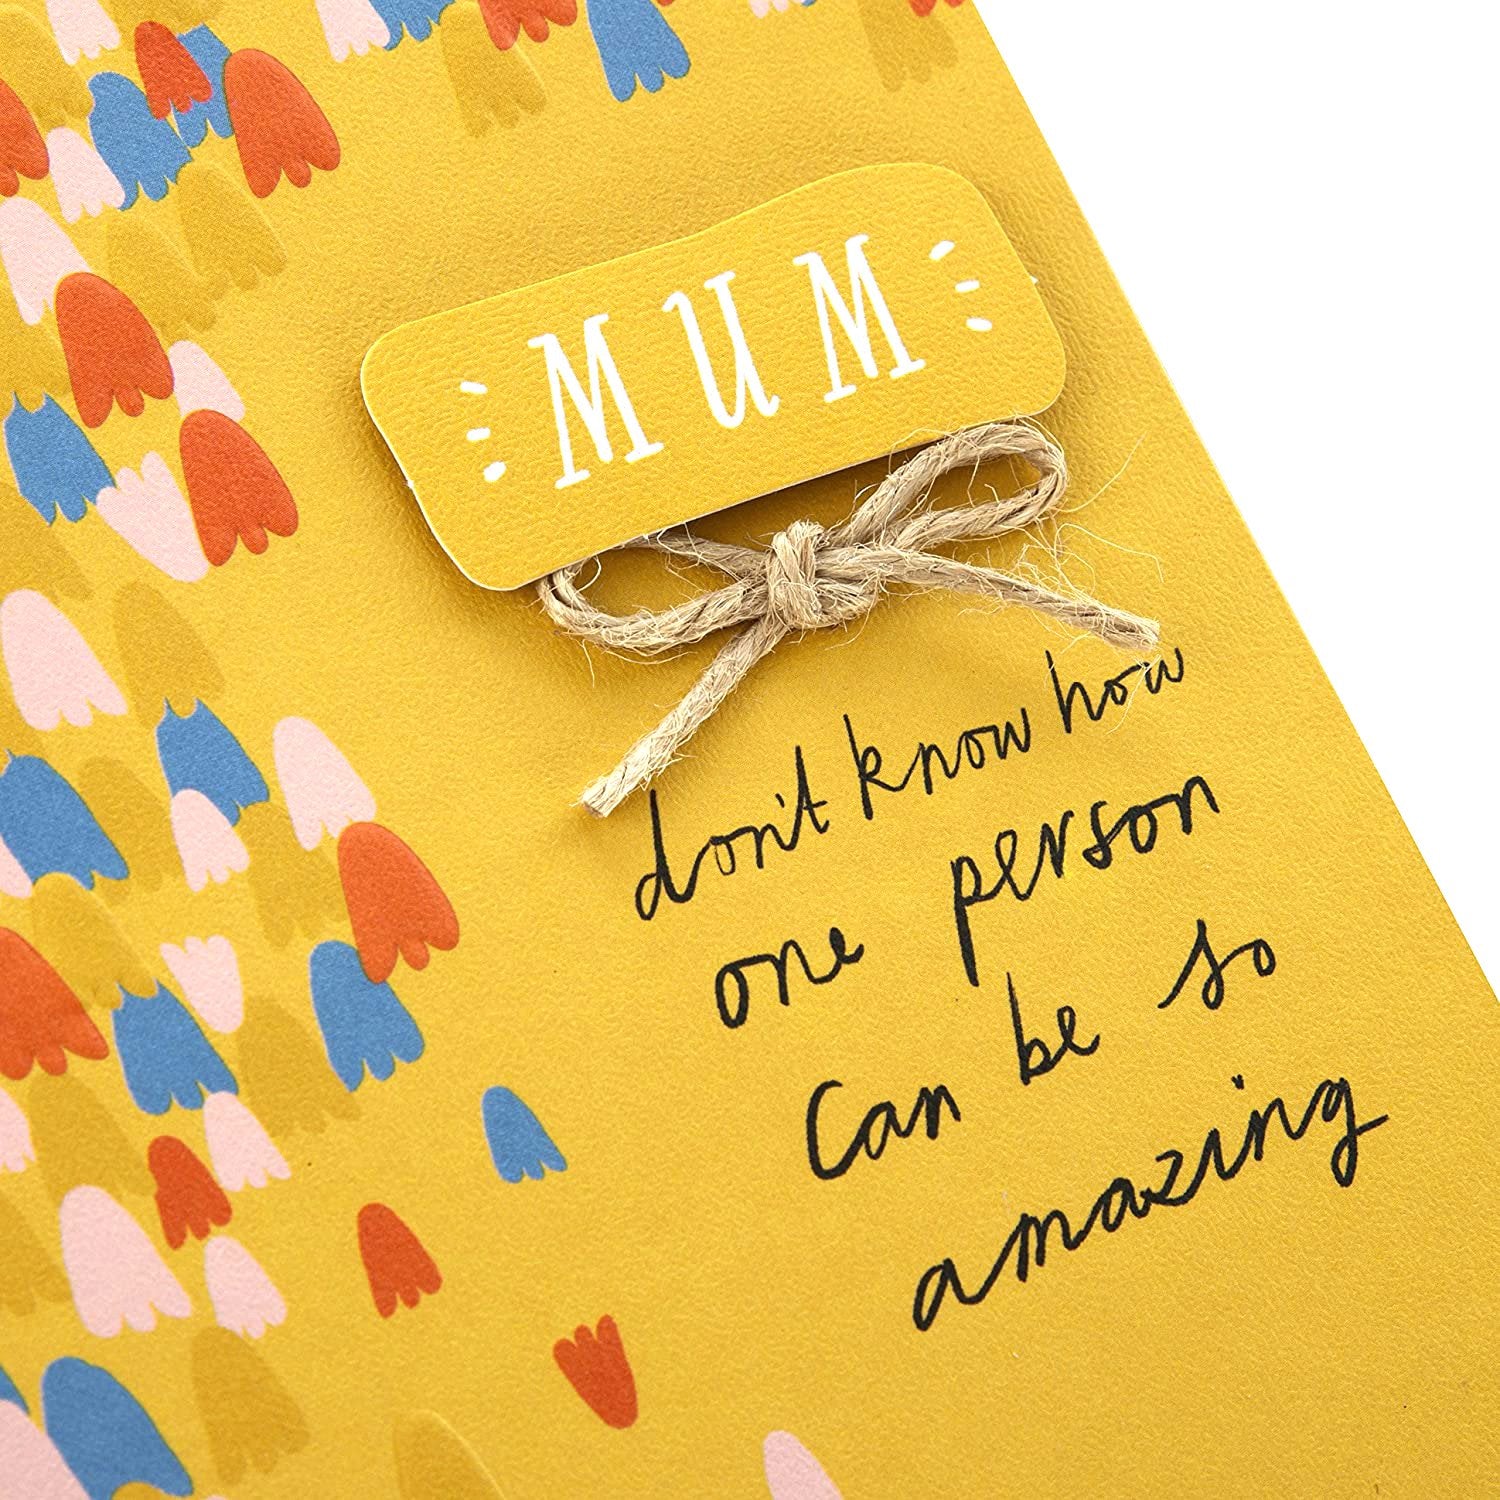 MUM
don't know how
one person
can be so
amazing